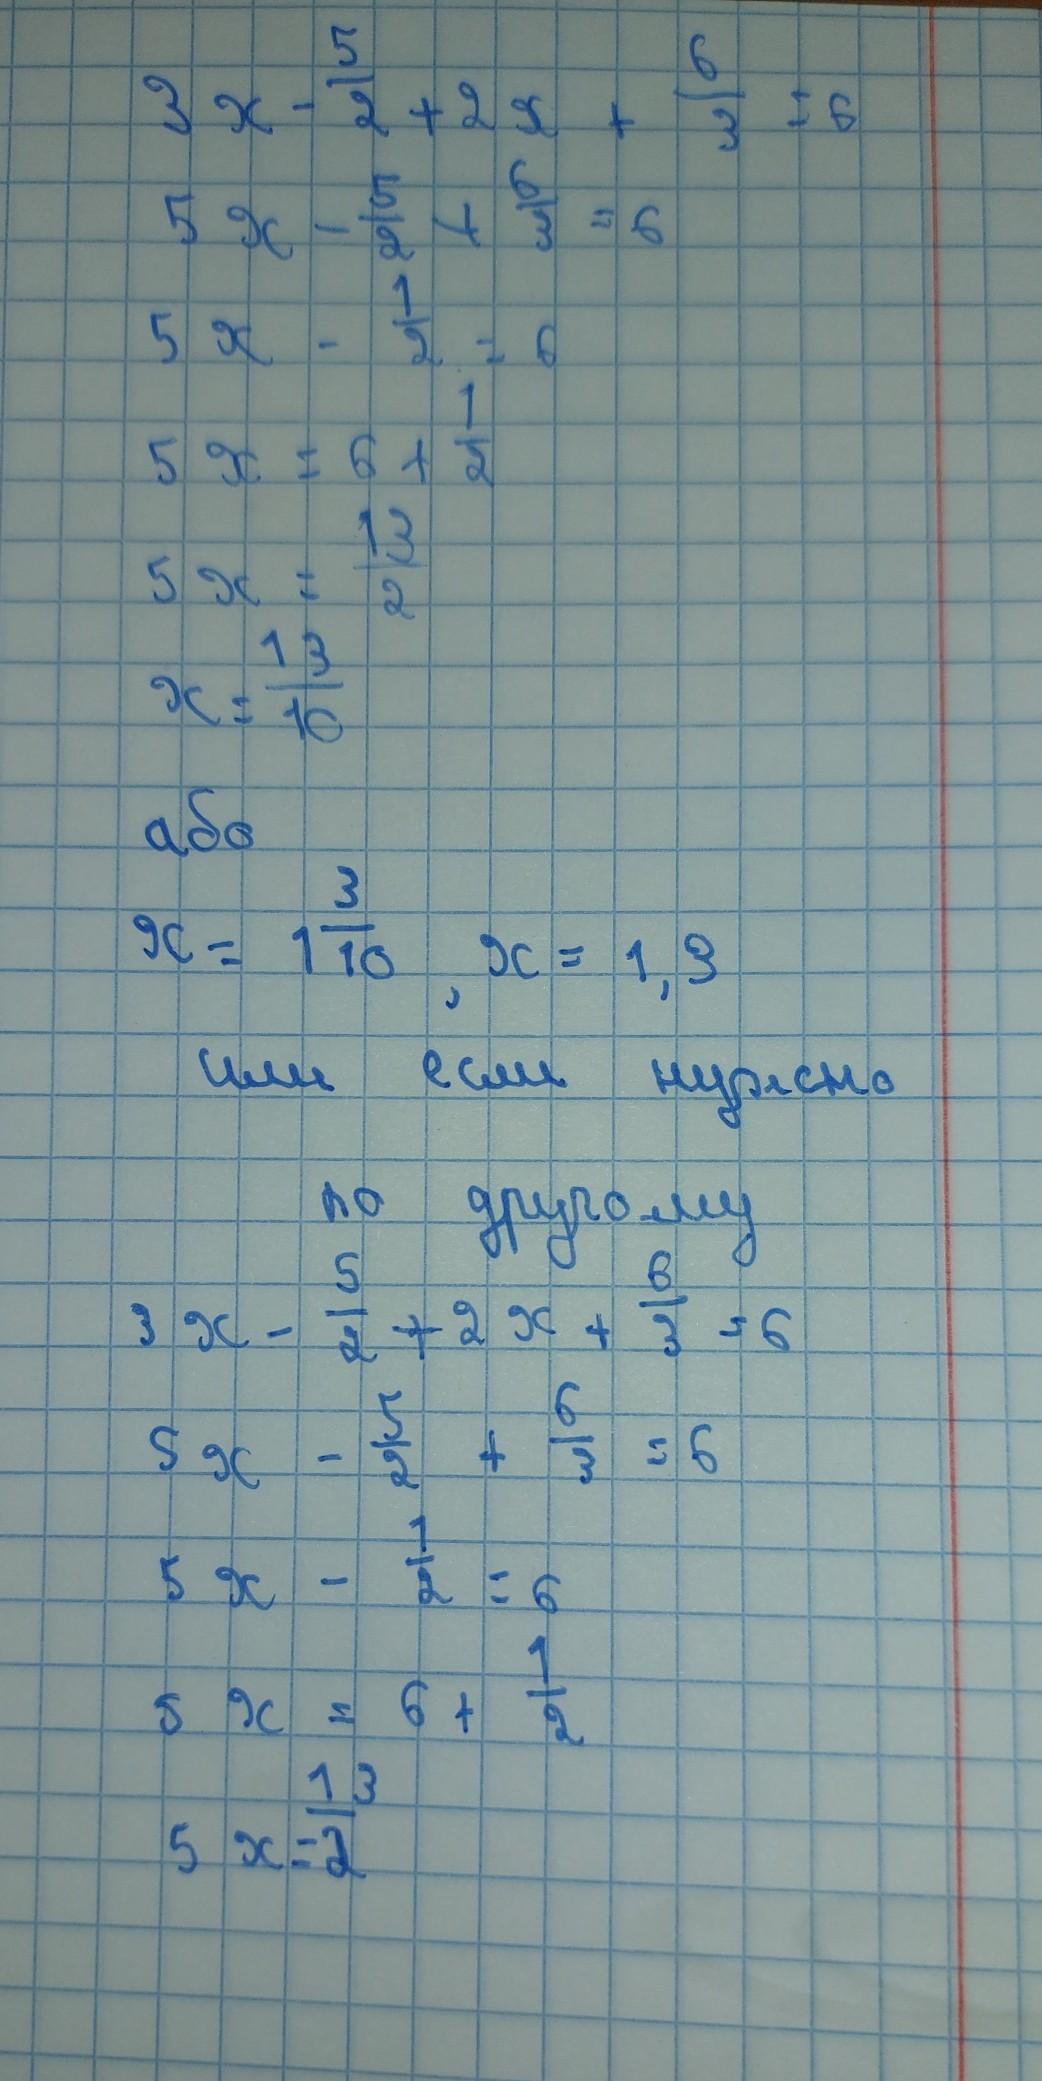 3x - 5/2 + 2x + 6/3 = 6
5x - 5/2 + 6/3 = 6
5x - 1/2 = 6
5x = 6 + 1/2
5x = 13/2
x = 13/10
або
x = 1 3/10 , x = 1,3
или если нужно
по другому
3x - 5/2 + 2x + 6/3 = 6
5x - 5/2 + 6/3 = 6
5x - 1/2 = 6
5x = 6 + 1/2
5x = 13/2